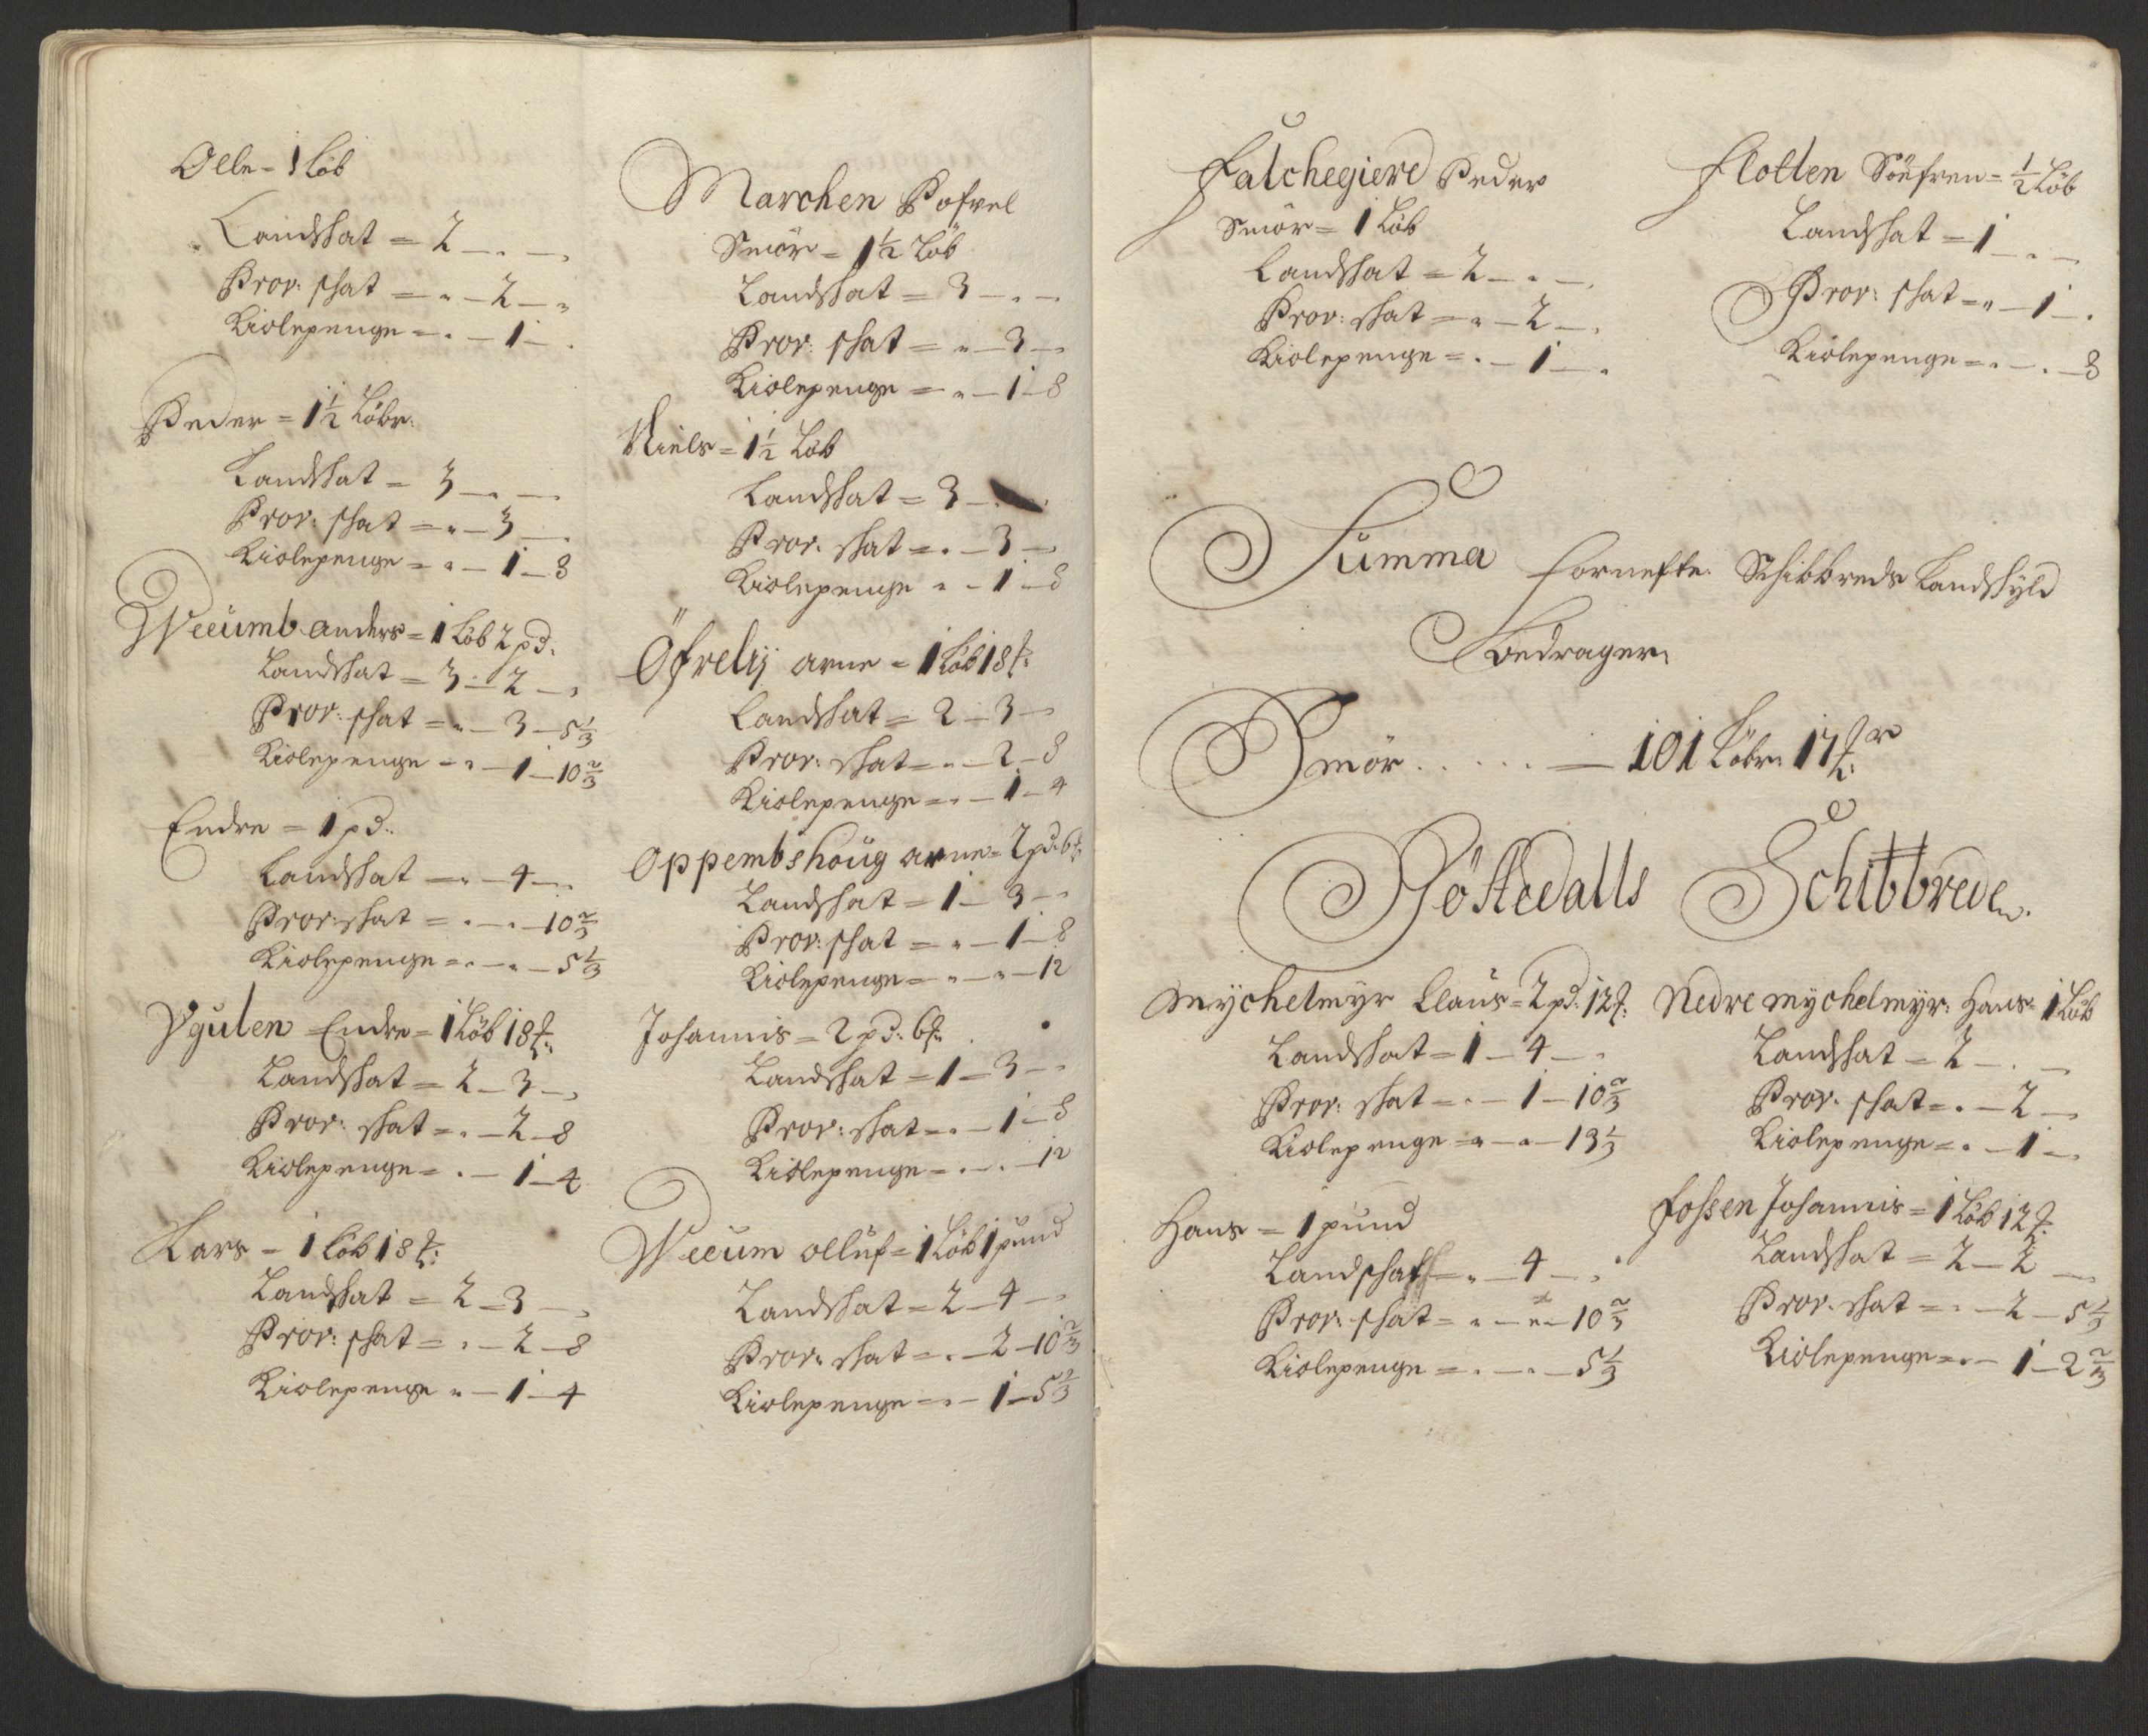 Olle = 1 Löb
Landskat = 2 - . -
Prov: skat = " - 2 - "
Kiolepenge = . - 1 - .
Peder = 1½ Löbe:
Landskat = 3 - . -
Prov: skat = " - 3 -
Kiolepenge = " - 1 - 8
Weeumb anders = 1 Löb 2 pd:
Landskat = 3 - 2 -
Prov: skat = " - 3 - 5⅓
Kiolepenge = " - 1 - 10⅔
Endre = 1 pd:
Landskat = " - 4 -
Prov: skat = . - . - 10⅔
Kiolepenge = . - " - 5⅓
Ygulen Endre = 1 Löb 18 ℔:
Landskat = 2 - 3 -
Prov: skat = . - 2 - 8
Kiolepenge = . - 1 - 4
Lars = 1 Löb 18 ℔:
Landskat = 2 - 3 -
Prov: skat = . - 2 - 8
Kiolepenge " - 1 - 4
Marchen Pofvel
Smör = 1½ Löb
Landskat = 3 - . -
Prov: skat = " - 3 -
Kiolepenge = " - 1 - 8
Niels = 1½ Löb
Landskat = 3 -
Prov: skat = . - 3 -
Kiolepenge " - 1 - 8
Öfrelij arne = 1 Löb 18 ℔:
Landskat = 2 - 3 -
Prov: skat = " - 2 - 8
Kiolepenge = . - 1 - 4
Oppembshoug arne = 2 pd: 6 ℔:
Landskat = 1 - 3 -
Prov: skat = " - 1 - 8
Kiolepenge = " - " - 12
Johannis = 2 pd: 6 ℔:
Landskat = 1 - 3 -
Prov: skat = . - 1 - 8
Kiolepenge = . - . - 12
Weeum olluf = 1 Löb 1 pund
Landskat = 2 - 4 -
Prov: skat = . - 2 - 10⅔
Kiolepenge = . - 1 - 5⅓
Falchegierd Peder
Smör = 1 Löb
Landskat = 2 - . -
Prov: skat = " - 2 - .
Kiolepenge = . - 1 - .
Flotten Söefren = ½ Löb
Landskat = 1 - . -
Prov: skat = " - 1 - .
Kiolepenge = . - . - 8
Summa fornefte: Schibbreds Landskyld
Bedrager:
Smör . . . . . — 101 Löbe 17 ℔r
Röstedalls Schibbrede.
Mychelmyr Claus = 2 pd: 12 ℔:
Landskat = 1 - 4 - .
Prov: skat = . - 1 - 10⅔
Kiolepenge = " - " - 13⅓
Hans = 1 pund
Landskat = " - 4 - .
Prov: skat = " - " - 10⅔
Kiolepenge = . - . - 5⅓
Nedre mychelmyr: Hans = 1 Löb
Landskat = 2 - . -
Prov: skat = . - 2 -
Kiolepenge = . - 1 -
Fossen Johannis = 1 Löb 12 ℔:
Landskat = 2 - 2 -
Prov: skat = . - 2 - 5⅓
Kiolepenge = . - 1 - 2⅔